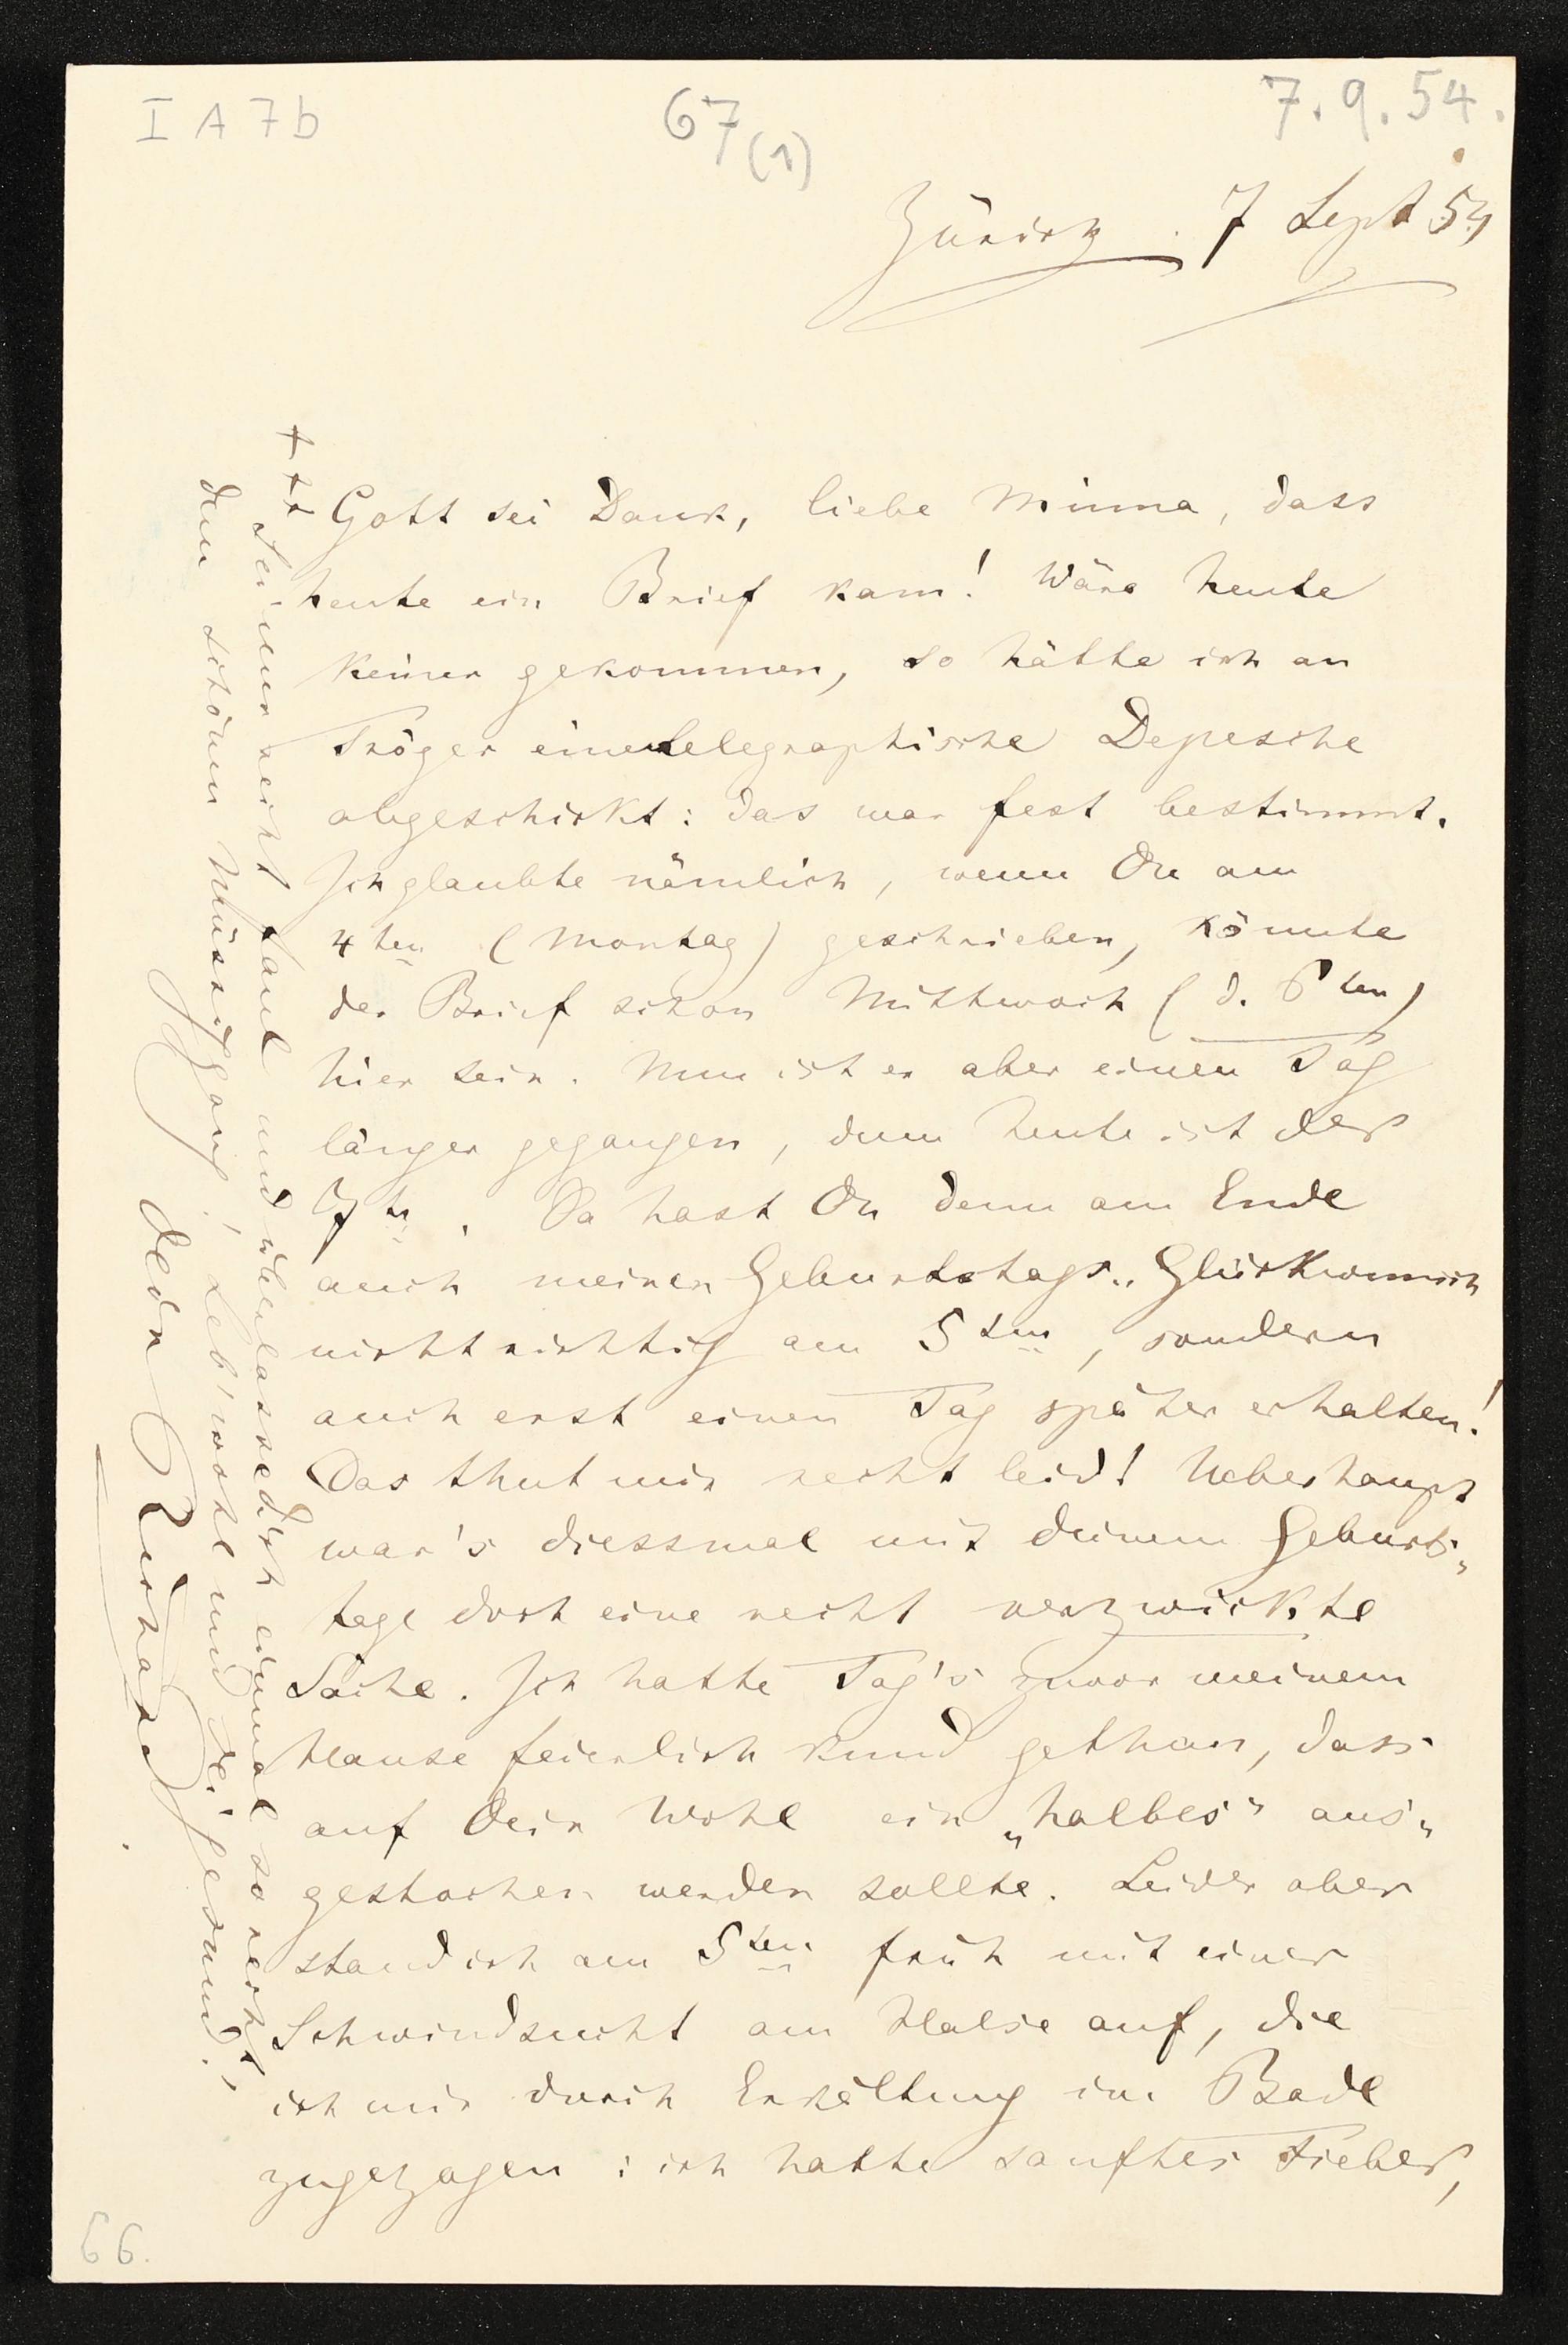 I A 7b
67 (1)
7. 9. 54.
Zürich. 7 Sept 54
Gott sei Dank, liebe Minna, dass
heute ein Brief kam! Wäre heute
keiner gekommen, so hätte ich an
Tröger eine telegraphische Depesche
abgeschickt: das war fest bestimmt.
Ich glaubte nämlich, wenn Du am
4ten (Montag) geschrieben, könnte
der Brief schon Mittwoch (d. 6ten)
hier sein. Nun ist er aber einen Tag
länger gegangen, denn heute ist der
7te. Da hast Du denn am Ende
auch meinen Geburtstags-Glückwunsch
nicht richtig am 5ten, sondern
auch erst einen Tag später erhalten!
Das thut mir recht leid! Ueberhaupt
war's diessmal mit deinem Geburts-
tage doch eine recht verzwickte
Sache. Ich hatte Tag's zuvor meinem
Hause feierlich kund gethan, dass
auf Dein Wohl ein „halbes" aus-
gestochen werden sollte. Leider aber
stand ich am 5ten früh mit einer
Schwindsucht am Halse auf, die
ich mir durch Erkältung im Bade
zugezogen: ich hatte sanftes Fieber,
Sei nur recht faul und überlasse dich einmal so recht
dem schönen Müssiggang! Leb' wohl und sei gesund!
Dein Richard
66.